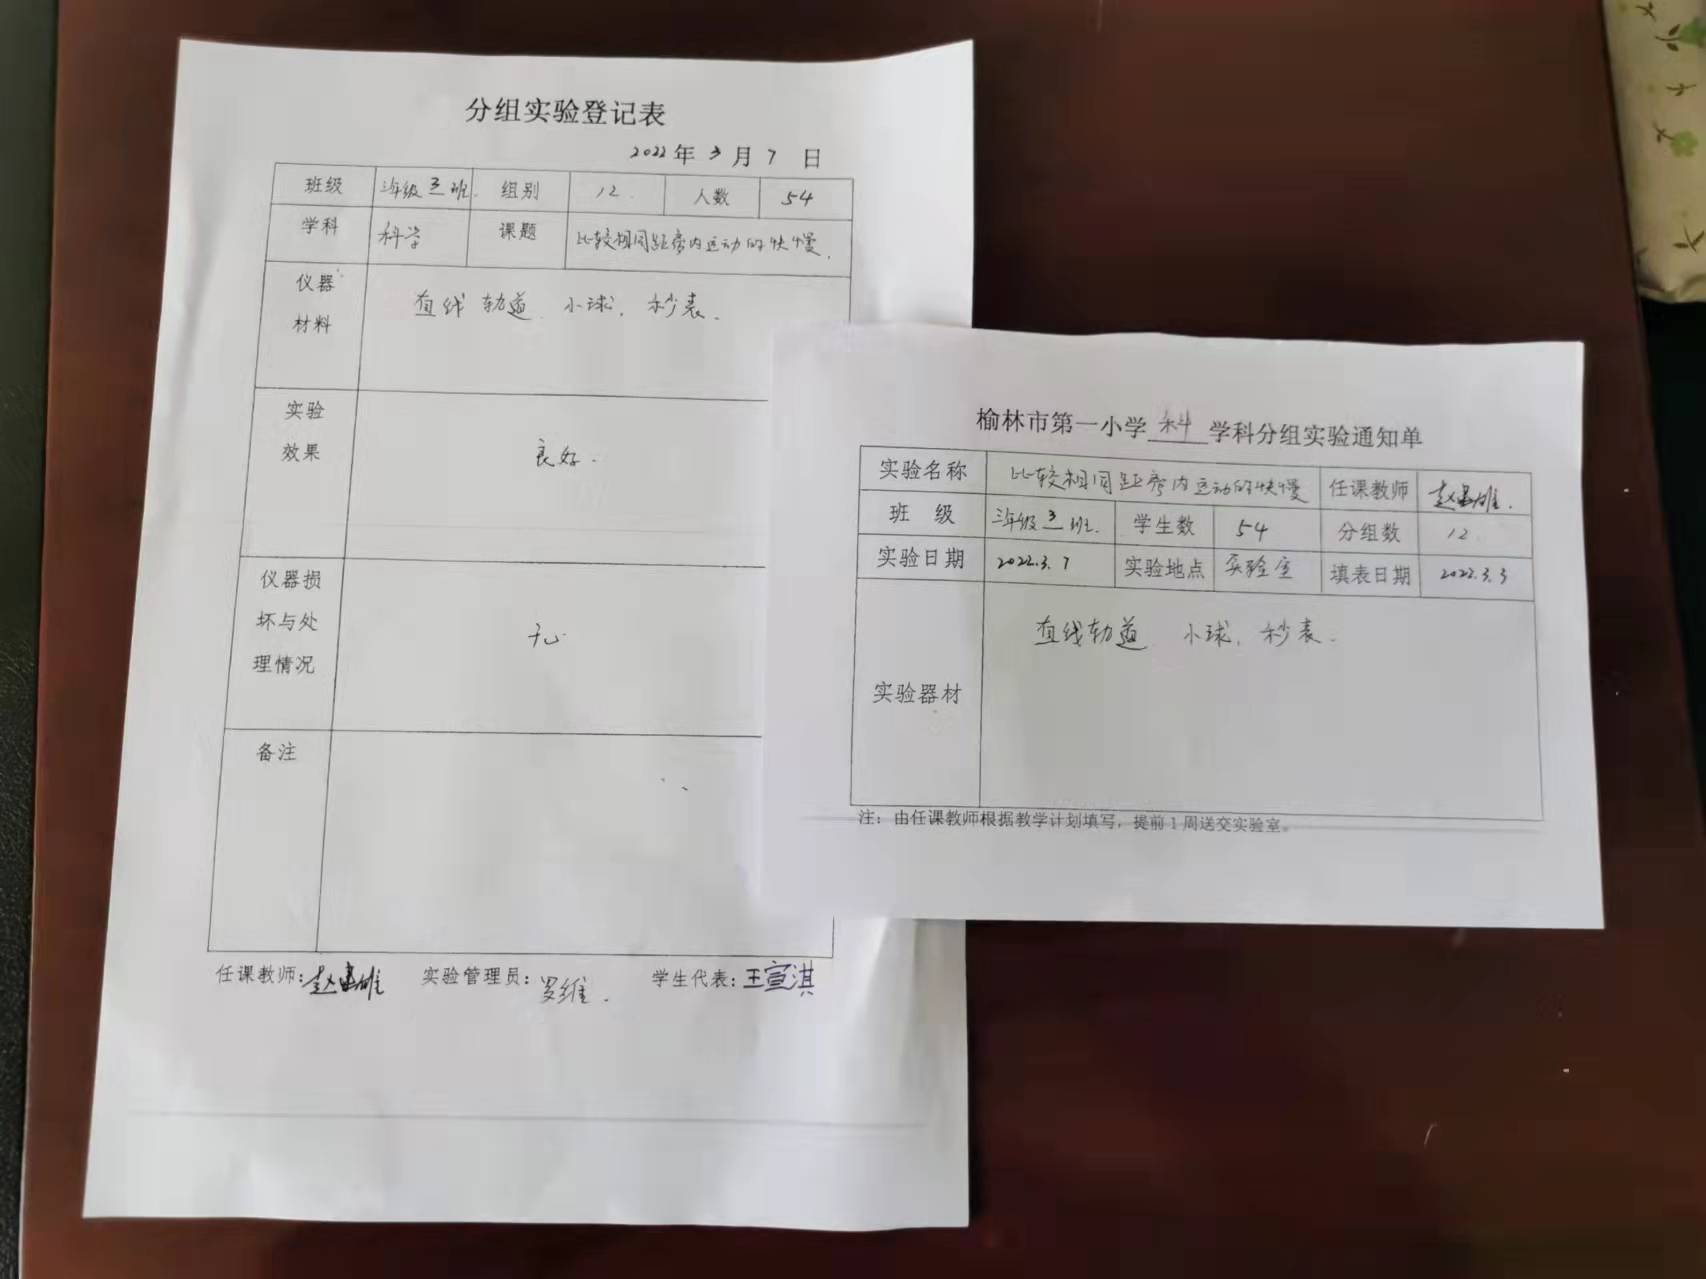 分组实验登记表
2022年3月7日
班级 三年级三班. 组别 12. 人数 54
学科 科学 课题 比较相同距离内运动的快慢.
仪器材料 直线轨道 小球. 秒表.
实验效果 良好.
仪器损坏与处理情况 无
备注
任课教师: 实验管理员:罗维. 学生代表:王宣淇
榆林市第一小学 科 学科分组实验通知单
实验名称 比较相同距离内运动的快慢 任课教师
班 级 三年级三班. 学生数 54 分组数 12
实验日期 2022.3.7 实验地点 实验室 填表日期 2022.3.3
实验器材 直线轨道 小球. 秒表.
注:由任课教师根据教学计划填写,提前1周送交实验室。